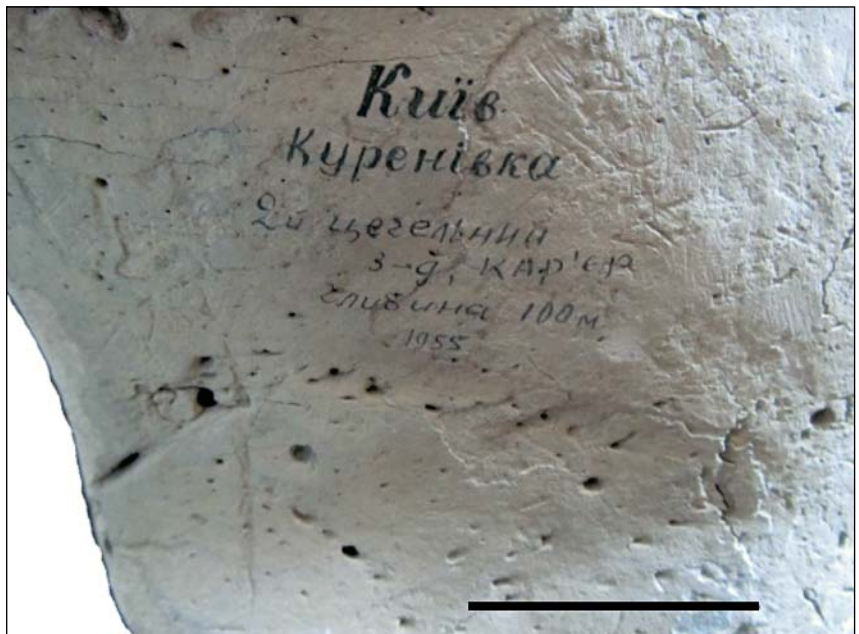 Київ
Куренівка
2й цегельний
з-д, КАР'ЄР
глибина 100м
1955